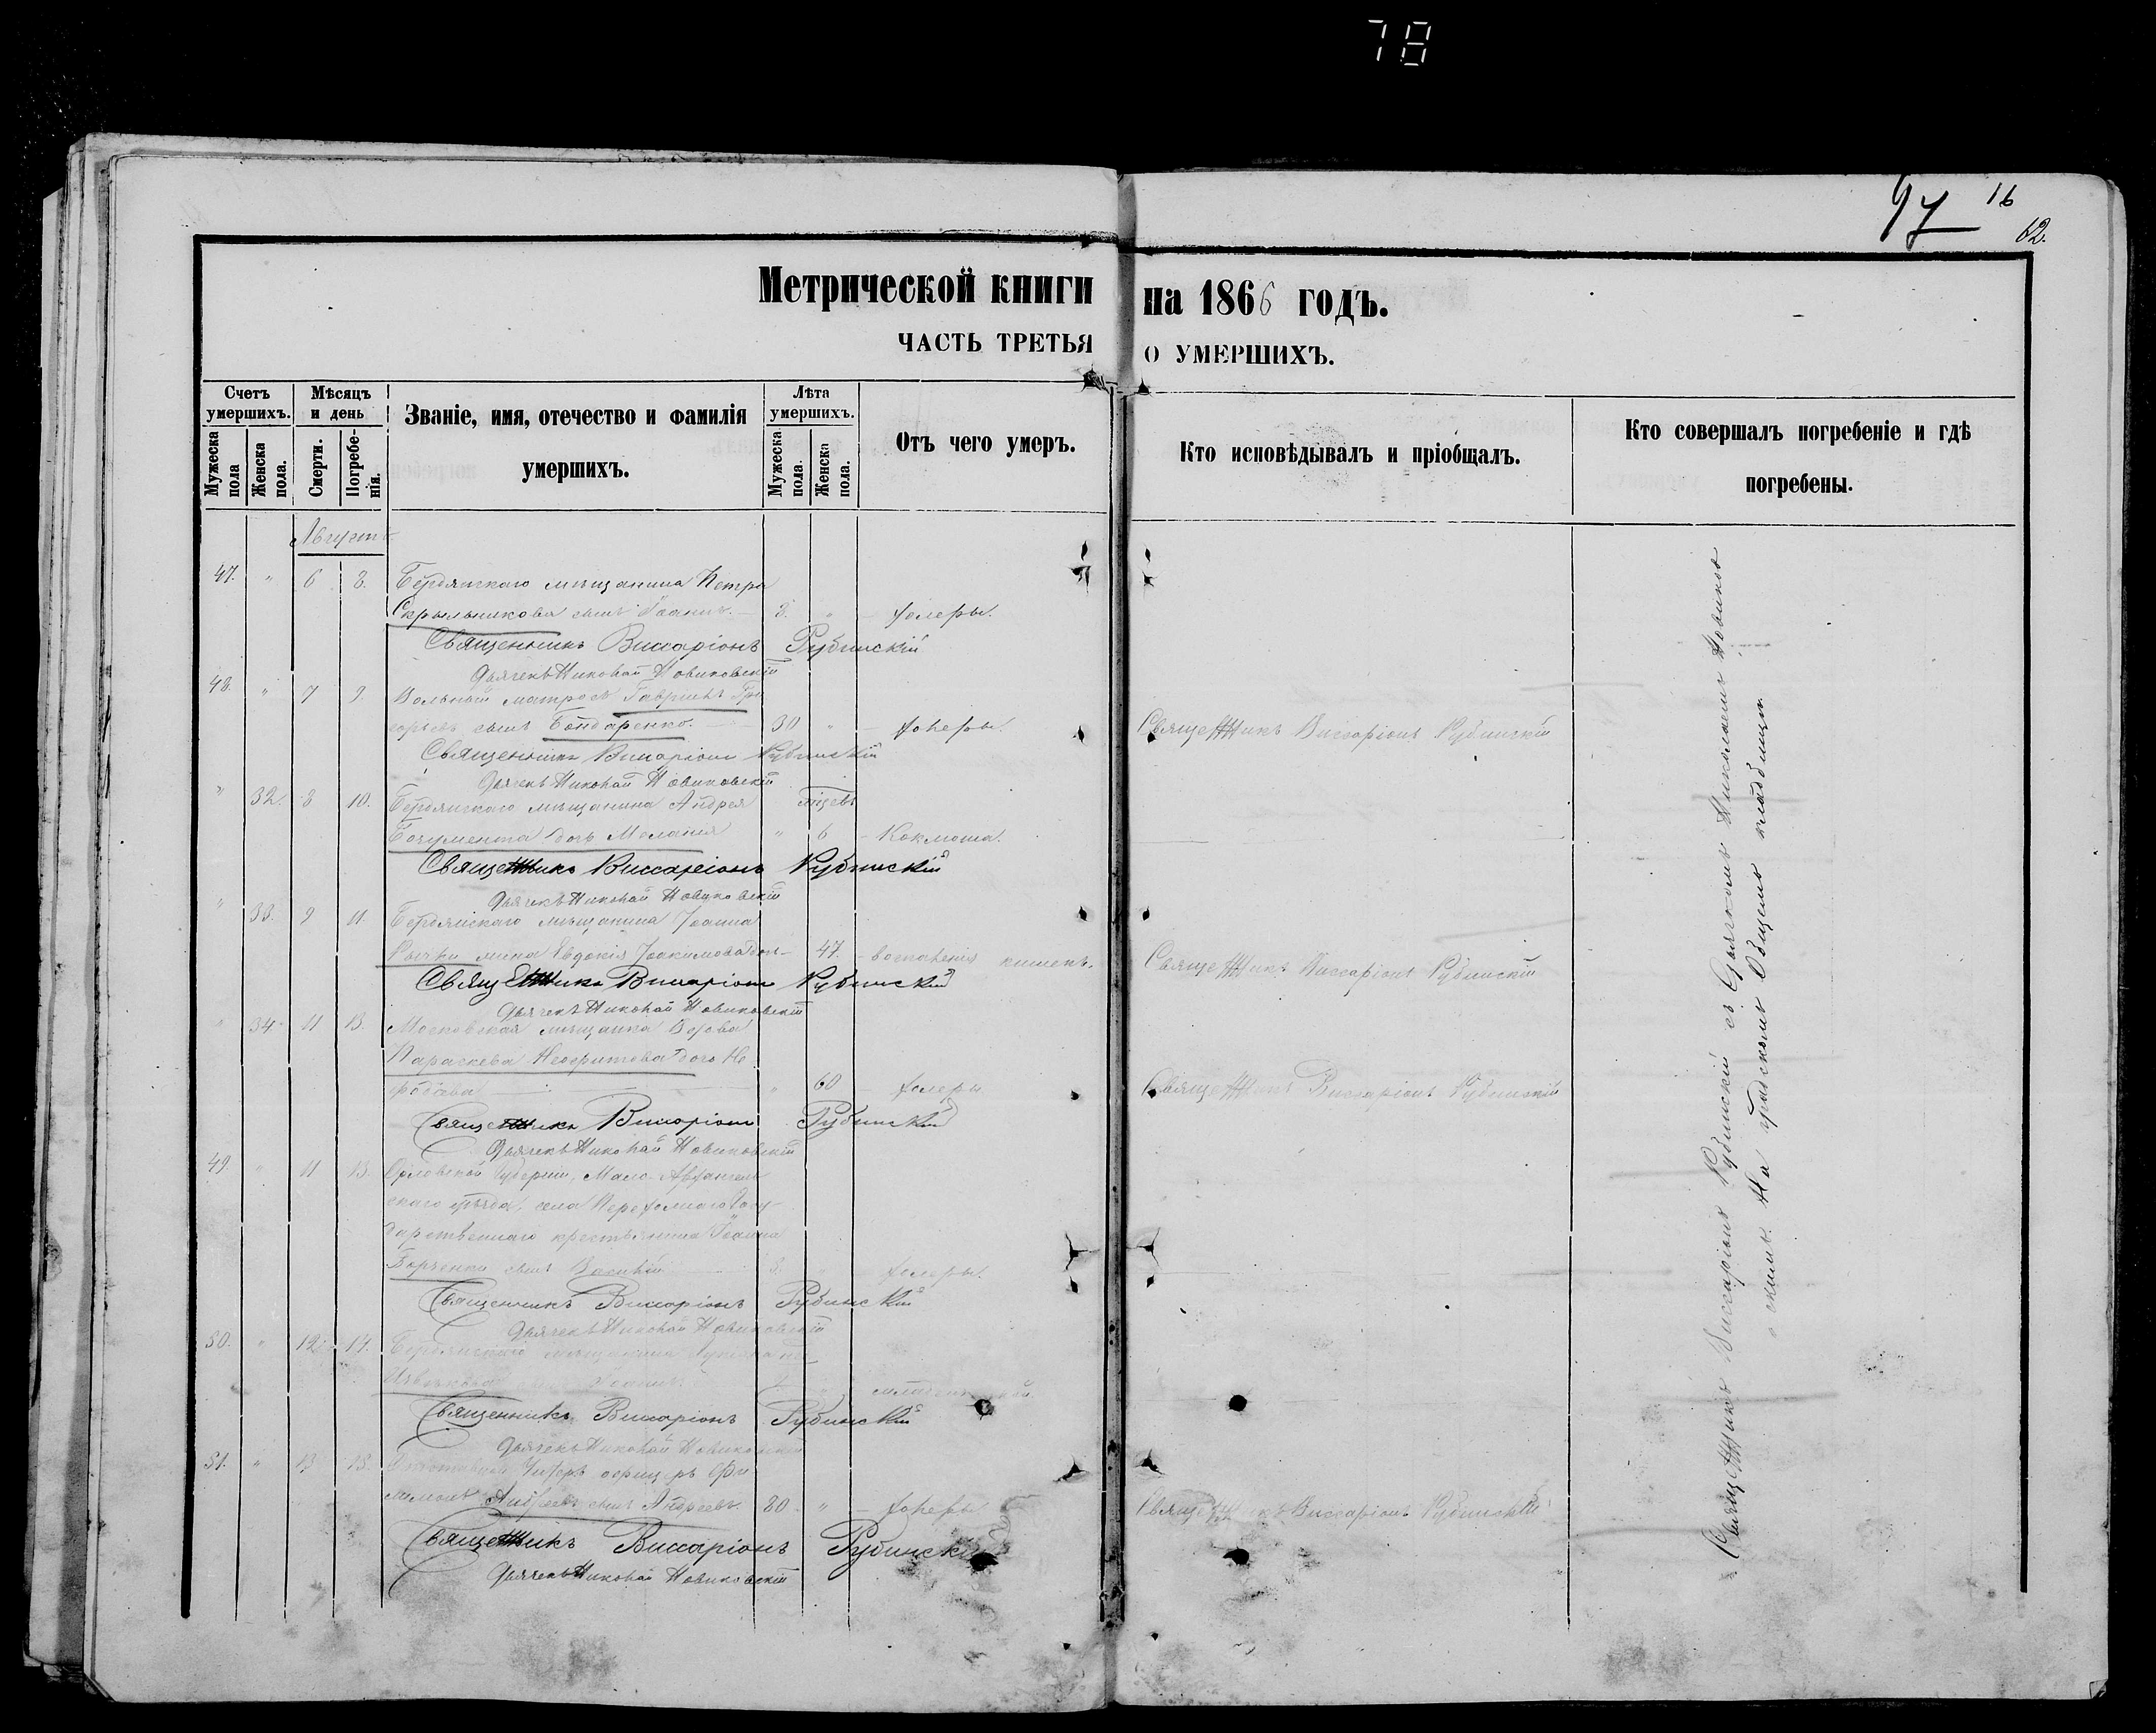 78
97
16
62.
Метрической книги на 1866 годъ.
ЧАСТЬ ТРЕТЬЯ О УМЕРШИХЪ.
Счетъ умершихъ.
Мужеска пола
Женска пола.
Мѣсяцъ и день
Смерти.
Погребенія.
Званіе, имя, отечество и фамилія умершихъ.
Лѣта умершихъ.
Мужеска пола.
Женска пола.
Отъ чего умеръ.
Кто исповѣдывалъ и пріобщалъ.
Кто совершалъ погребеніе и гдѣ погребены.
Августъ
47. " 6 8. Бердянскаго мѣщанина Петра
Скрыльникова сынъ Іоаннъ. 3. " холеры.
Священникъ Виссаріонъ Рубинскій
Дьячекъ Николай Новиковскій
48. " 7 9. Вольный матросъ Гавріилъ Гри
горьевъ сынъ Бондаренко. 30 " холеры. Священникъ Виссаріонъ Рубинскій
Священникъ Виссаріонъ Рубинскій
Дьячекъ Николай Новиковскій
" 32. 8 10. Бердянскаго мѣщанина Андрея мѣсяцевъ
дочь Меланія " 6
Священникъ Виссаріонъ Рубинскій
Дьячекъ Николай Новиковскій
" 33. 9 11. Бердянскаго мѣщанина Іоанна
Евдокія Іоакимова доч- 47. воспаленія кишекъ. Священникъ Виссаріонъ Рубинскій
Священникъ Виссаріонъ Рубинскій
Дьячекъ Николай Новиковскій
" 34. 11 13. Московская мѣщанка вдова
Параскева дочь Не
" 60 холеры Священникъ Виссаріонъ Рубинскій
Священникъ Виссаріонъ Рубинскій
Дьячекъ Николай Новиковскій
49 " 11 13. Орловской губерніи, Мало-Архангель
скаго уѣзда, села Госу
дарственнаго крестьянина Іоанна
сынъ Василій 3. холеры.
Священникъ Виссаріонъ Рубинскій
Дьячекъ Николай Новиковскій
50. " 12 14. Бердянскаго мѣщанина
Священникъ Виссаріонъ Рубинскій
Дьячекъ Николай Новиковскій
51. " 13 15. Отставной Унтеръ офицеръ Фи
лимонъ Андреевъ сынъ Андреевъ. 80 " холеры Священникъ Виссаріонъ Рубинскій
Священникъ Виссаріонъ Рубинскій
Дьячекъ Николай Новиковскій
Священникъ Виссаріонъ Рубинскій съ Дьячкомъ Николаемъ Новиков
скимъ На градскомъ Общемъ кладбищѣ